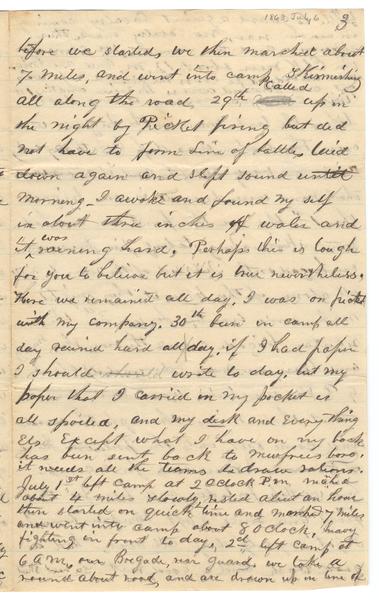 1863 July 6
3
before we started, we then marched about
7 miles, and went into camp, Skirmishing
all along the road, 29th Called up in
the night by Picket firing but did
not have to form line of battle, laid
down again and slept sound until
morning - I awoke and found my self
in about three inches of water and
it was raining hard. Perhaps this is tough
for you to believe but it is true nevertheless.
Here we remained all day, I was on picket
with my company. 30th been in camp all
day rained hard all day, if I had paper
I should write to day, but my
paper that I carried in my pocket is
all spoiled, and my desk and Every thing
Els Except what I have on my back
has been sent back to Murfrees boro.
it needs all the teams to draw rations.
July 1st left camp at 2 OClock P.m. made
about 4 miles slowly, rested about an hour
then started on quick time and marched 7 miles
and went into camp about 8 OClock, heavy
fighting in front to day, 2nd left camp at
6 A.M, our Brigade, rear guard, we take a
round about road, and are drawn up in line of